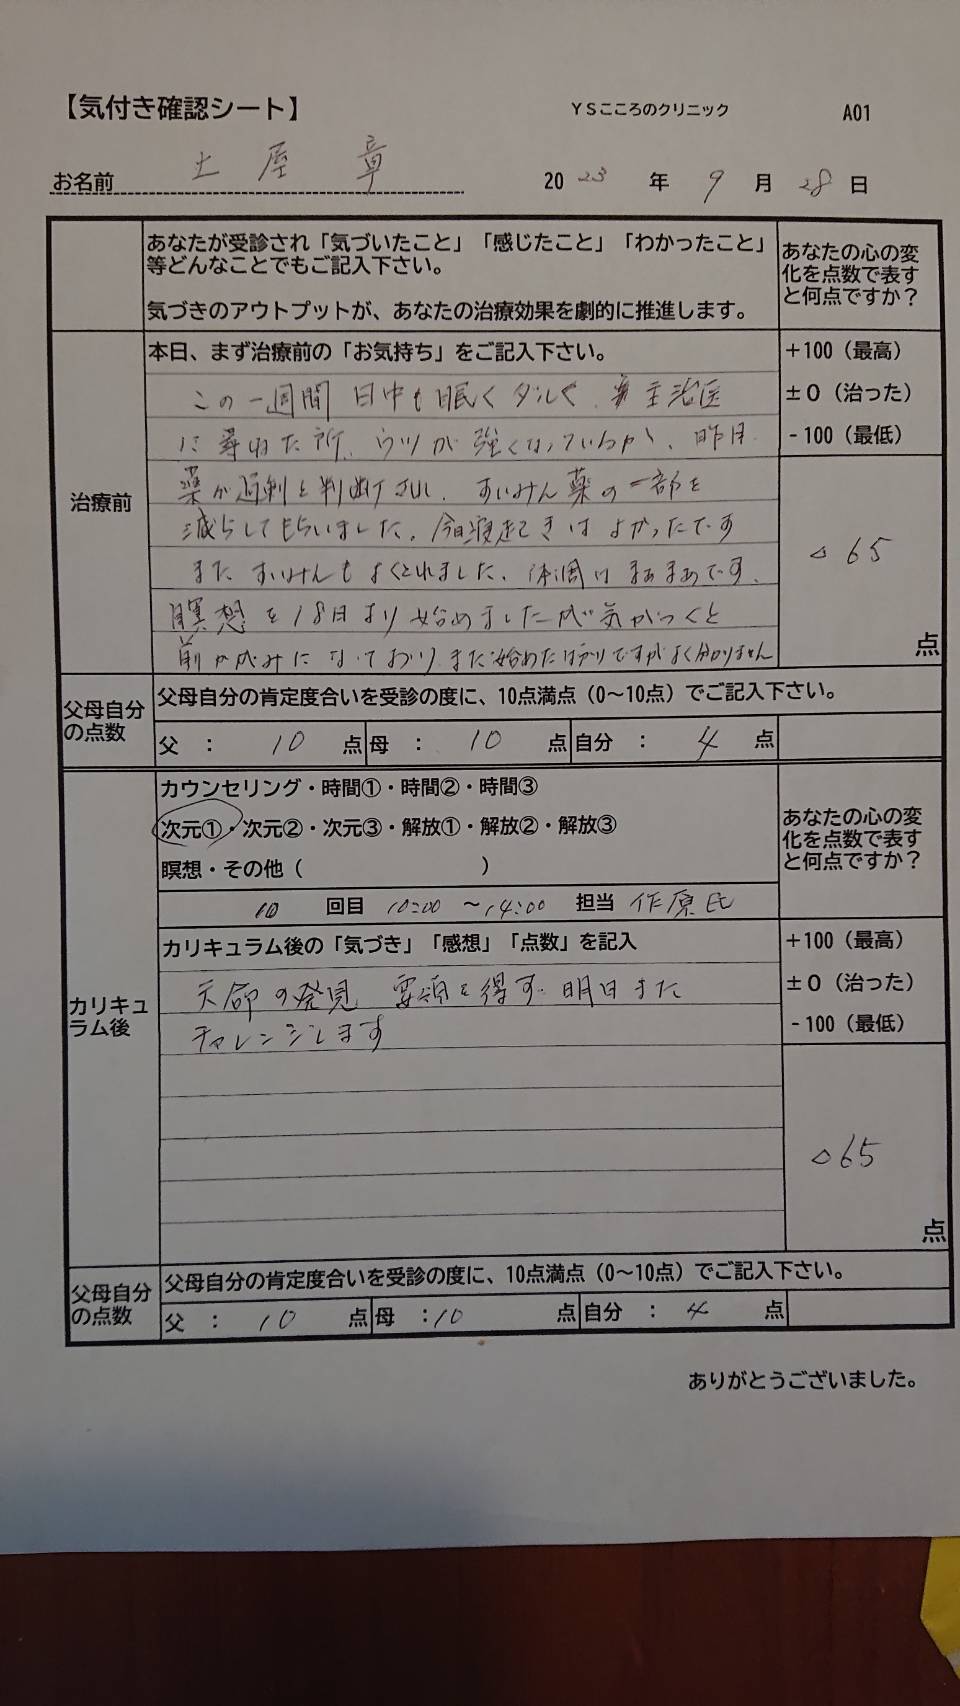 【気付き確認シート】
YSこころのクリニック
A01
お名前 土屋 章
2023年 9月 28日
あなたが受診され「気づいたこと」「感じたこと」「わかったこと」
等どんなことでもご記入下さい。
気づきのアウトプットが、あなたの治療効果を劇的に推進します。
あなたの心の変
化を点数で表す
と何点ですか？
治療前
本日、まず治療前の「お気持ち」をご記入下さい。
この一週間 日中も眠くダルく、主治医
に尋ねた所、ウツが強くなっているか、昨日
薬が過剰と判断され、すいみん薬の一部を
減らしてもらいました。今日寝起きはよかったです
また すいみんもよくとれました、体調はまあまあです、
瞑想を18日より始めましたが気がつくと
前かがみになっており、まだ始めたばかりですがよく分かりません
+100（最高）
±0（治った）
-100（最低）
△65
点
父母自分
の点数
父母自分の肯定度合いを受診の度に、10点満点（0～10点）でご記入下さい。
父 ： 10 点 母 ： 10 点 自分 ： 4 点
カリキュ
ラム後
カウンセリング・時間①・時間②・時間③
次元①・次元②・次元③・解放①・解放②・解放③
瞑想・その他（ ）
10 回目 10:00 ～14:00 担当 作原氏
あなたの心の変
化を点数で表す
と何点ですか？
カリキュラム後の「気づき」「感想」「点数」を記入
天命の発見 要領を得ず 明日また
チャレンジします
+100（最高）
±0（治った）
-100（最低）
△65
点
父母自分
の点数
父母自分の肯定度合いを受診の度に、10点満点（0～10点）でご記入下さい。
父 ： 10 点 母 ：10 点 自分 ： 4 点
ありがとうございました。